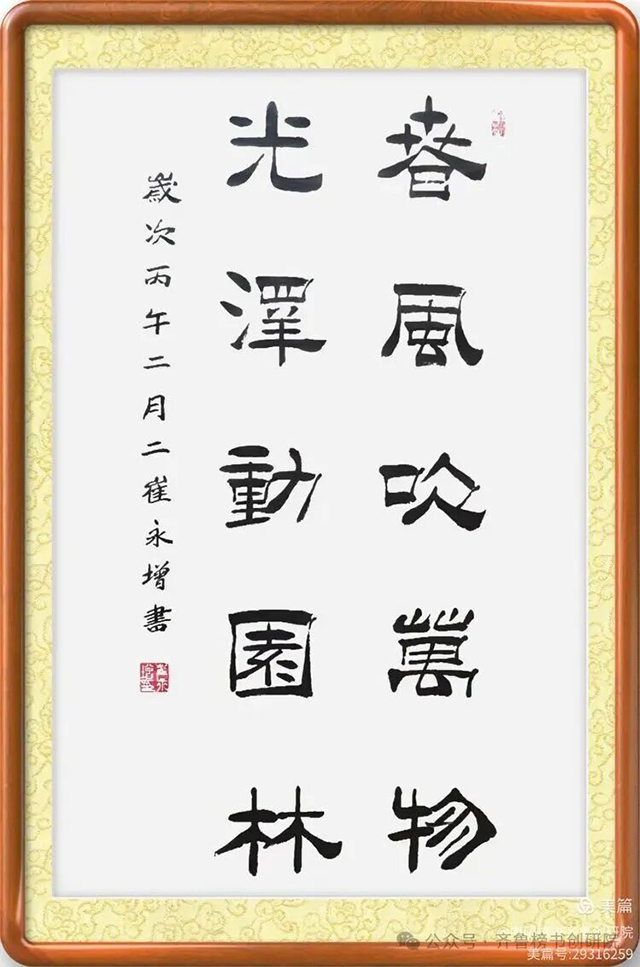 春風吹萬物
光澤動園林
歲次丙午二月二崔永增書
美篇
公众号·齐鲁榜书创研院
美篇号:29316259